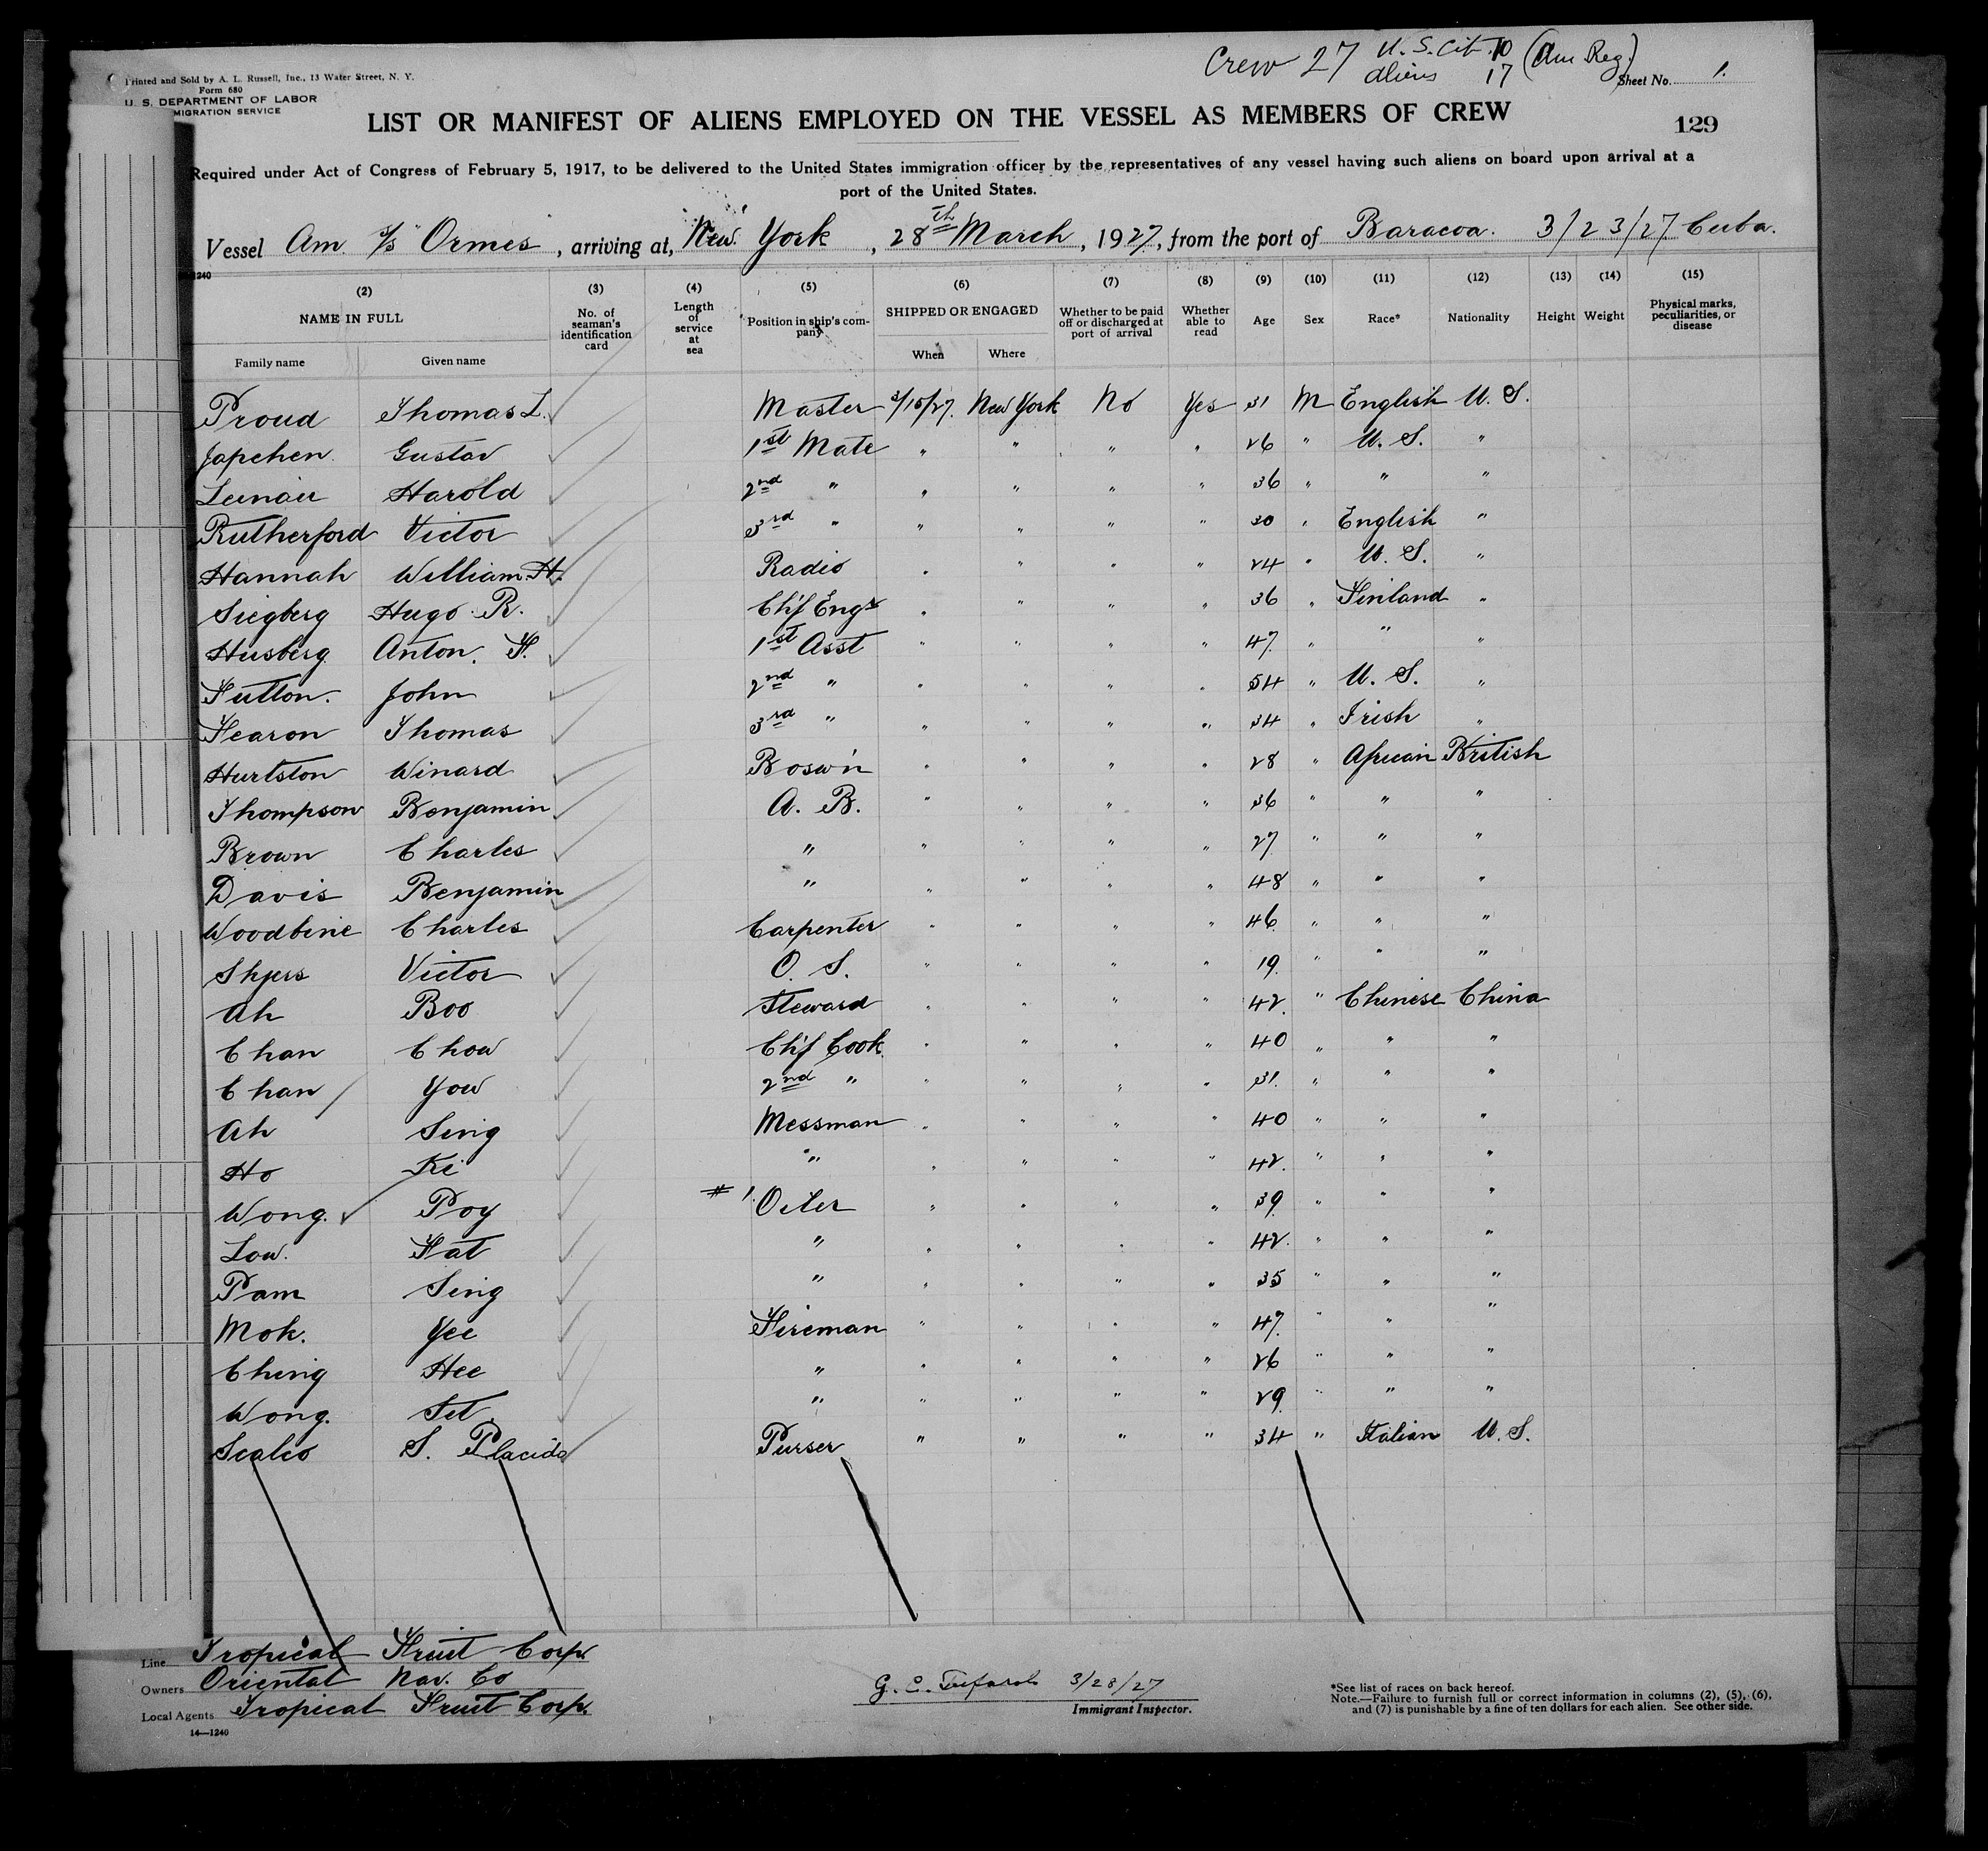 Crew 27 U. S. Cit. 10 (Am Reg.)
aliens 17
Printed and Sold by A. L. Russell, Inc., 13 Water Street, N. Y.
Form 680
U. S. DEPARTMENT OF LABOR
MIGRATION SERVICE
Sheet No. 1.
LIST OR MANIFEST OF ALIENS EMPLOYED ON THE VESSEL AS MEMBERS OF CREW
129
Required under Act of Congress of February 5, 1917, to be delivered to the United States immigration officer by the representatives of any vessel having such aliens on board upon arrival at a
port of the United States.
Vessel Am. S/S Ormes, arriving at, New York, 28th March, 1927, from the port of Baracoa. 3/23/27 Cuba.
1240
(2) (3) (4) (5) (6) (7) (8) (9) (10) (11) (12) (13) (14) (15)
NAME IN FULL Family name Given name No. of seaman's identification card Length of service at sea Position in ship's company SHIPPED OR ENGAGED When Where Whether to be paid off or discharged at port of arrival Whether able to read Age Sex Race* Nationality Height Weight Physical marks, peculiarities, or disease
Proud Thomas L. Master 3/15/27. New York No Yes 31 M English U. S.
Gustav 1st Mate " " " " 26 " U. S. "
Harold 2nd " " " " " 36 " " "
Rutherford Victor 3rd " " " " " 30 " English "
Hannah William H. Radio " " " " 24 " U. S. "
Siegberg Hugo R. Ch'f Engr " " " " 36 " Finland "
Husberg Anton. F. 1st Asst " " " " 47 " " "
Futton. John 2nd " " " " " 54 " U. S. "
Fearon Thomas 3rd " " " " " 34 " Irish "
Hurlston Winard Bosw'n " " " " 28 " African British
Thompson Benjamin A. B. " " " " 36 " " "
Brown Charles " " " " " 27 " " "
Davis Benjamin " " " " " 48 " " "
Woodbine Charles Carpenter " " " " 46 " " "
Victor O. S. " " " " 19. " " "
Ah Boo Steward " " " " 42. " Chinese China
Chan Chow Ch'f Cook " " " " 40 " " "
Chan You 2nd " " " " " 31. " " "
Ah Sing Messman " " " " 40 " " "
Ho Ki " " " " " 42. " " "
Wong. Poy #1 Oiler " " " " 39 " " "
Low. Fat " " " " " 42. " " "
Pam Sing " " " " " 35 " " "
Mok. Yee Fireman " " " " 47. " " "
Ching Hee " " " " " 26 " " "
Wong. Set " " " " " 29 " " "
Scalco S. Placido Purser " " " " 34 " Italian U. S.
Line Tropical Fruit Corp.
Owners Oriental Nav. Co
Local Agents Tropical Fruit Corp.
14—1240
G. E. 3/28/27
Immigrant Inspector.
*See list of races on back hereof.
Note.—Failure to furnish full or correct information in columns (2), (5), (6),
and (7) is punishable by a fine of ten dollars for each alien. See other side.